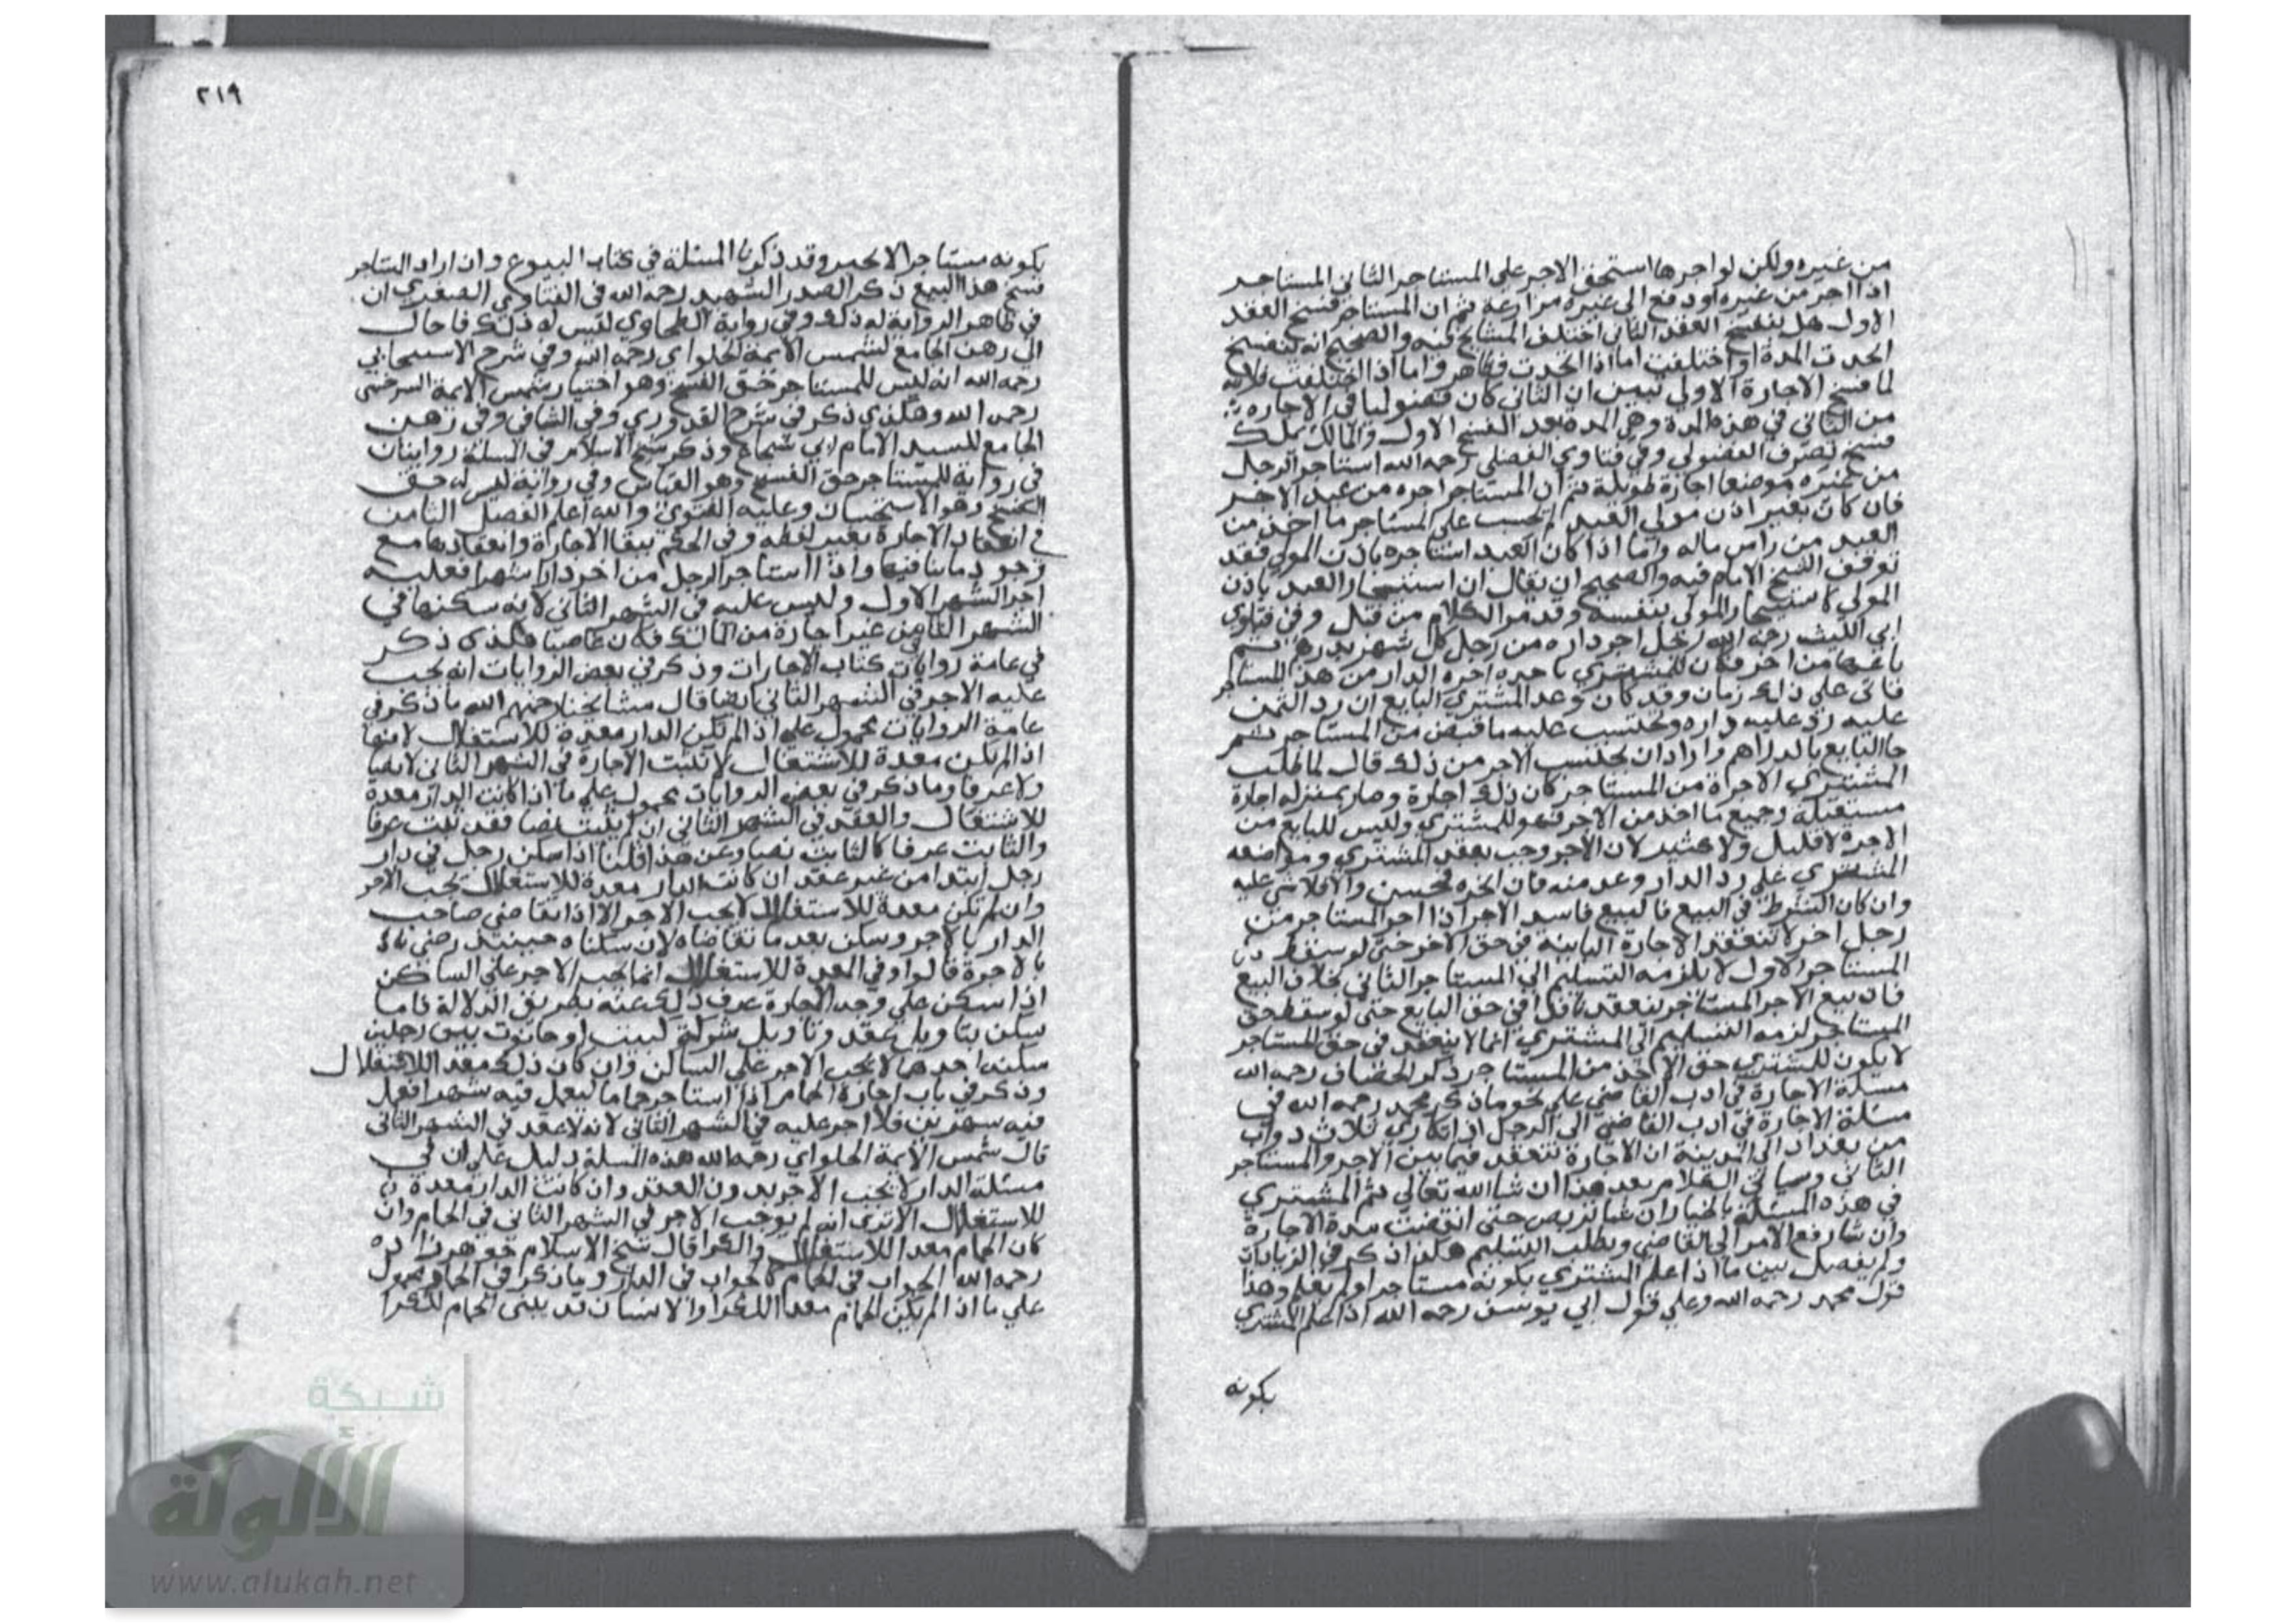 من غيره ولكن لو اجرها استحق الاجر على المستاجر الثاني المستاجر
اذا اجر من غيره او دفع الى غيره مزارعة ثم ان المستاجر فسخ العقد
الاول هل ينفسخ العقد الثاني اختلف المشايخ فيه والصحيح انه ينفسخ
اتحدت المدة او اختلفت اما اذا اتحدت فظاهر واما اذا اختلفت فلانه
لما فسخ الاجارة الاولى تبين ان الثاني كان فضوليا في الاجارة
من الثاني في هذه المدة وهي المدة بعد الفسخ الاول والمالك يملك
فسخ تصرف الفضولي وفي فتاوي الفضلي رحمه الله استاجر الرجل
من غيره موضعا اجارة طويلة ثم ان المستاجر اجره من عبد الاجر
فان كان بغير اذن مولى العبد لم يحسب على المستاجر ما اخذ من
العبد من راس ماله واما اذا كان العبد استاجره باذن المولى فقد
توقف الشيخ الامام فيه والصحيح ان يقال ان استئجار العبد باذن
المولى كاستيجار المولى بنفسه وقد مر الكلام من قبل وفي فتاوي
ابي الليث رحمه الله رجل اجر داره من رجل كل شهر بدرهم ثم
باعها من اخر فكان المشتري ياخذ اجرة الدار من هذا المستاجر
فاتى على ذلك زمان وقد كان وعد المشتري البايع ان رد الثمن
عليه رد عليه داره ويحتسب عليه ما قبض من المستاجر ثم
جا البايع بالدراهم واراد ان يحتسب الاجر من ذلك قال لما طلب
المشتري الاجرة من المستاجر كان ذلك اجارة وصار بمنزلة اجارة
مستقبلة وجميع ما اخذ من الاجر فهو للمشتري وليس للبايع من
الاجرة لا قليل ولا كثير لان الاجر وجب بعقد المشتري ومواضعة
المشتري على رد الدار وعد منه فان انجزه فحسن والا فلا شي عليه
وان كان الشرط في البيع فالبيع فاسد الاجر اذا اجر المستاجر من
رجل اخر لا تنعقد الاجارة الثانية في حق الاخر حتى لو سقط
المستاجر الاول لا يلزمه التسليم الى المستاجر الثاني بخلاف البيع
فان بيع الاجر المستاجر ينعقد نافذا في حق البايع حتى لو سقط حق
المستاجر لزمه التسليم الى المشتري انما لا ينعقد في حق المستاجر
لا يكون للمشتري حق الاخذ من المستاجر ذكر الخصاف رحمه الله
مسئلة الاجارة في ادب القاضي على نحو ما ذكر محمد رحمه الله في
مسئلة الاجارة في ادب القاضي الى الرجل اذا تكارى ثلاث دواب
من بغداد الى المدينة ان الاجارة تنعقد فيما بين الاجر والمستاجر
الثاني وسياتي الكلام بعد هذا ان شا الله تعالى ثم المشتري
في هذه المسئلة بالخيار ان شا تربص حتى انقضت مدة الاجارة
وان شا رفع الامر الى القاضي ويطلب التسليم هكذا ذكر في الزيادات
ولم يفصل بين ما اذا علم المشتري بكونه مستاجرا ولم يعلم وهذا
قول محمد رحمه الله وعلى قول ابي يوسف رحمه الله اذا علم المشتري
بكونه
٢١٩
بكونه مستاجرا لا يخير وقد ذكرنا المسئلة في كتاب البيوع وان اراد المستاجر
فسخ هذا البيع ذكر الصدر الشهيد رحمه الله في الفتاوي الصغرى ان
في ظاهر الرواية له ذلك وفي رواية الطحاوي ليس له ذلك فاحال
الى رهن الجامع لشمس الايمة الحلواي رحمه الله وفي شرح الاسبيجابي
رحمه الله انه ليس للمستاجر حق الفسخ وهو اختيار شمس الايمة السرخسي
رحمه الله وهكذي ذكر في شرح القدوري وفي الشافي وفي رهن
الجامع للسيد الامام ابي شجاع وذكر شيخ الاسلام في المسئلة روايتان
في رواية للمستاجر حق الفسخ وهو القياس وفي رواية ليس له حق
الفسخ وهو الاستحسان وعليه الفتوى والله اعلم الفصل الثامن
في انعقاد الاجارة بغير لفظه وفي الحكم ببقا الاجارة وانعقادها مع
وجود ما ينافيها واذا استاجر الرجل من اخر دارا شهرا فعليه
اجر الشهر الاول وليس عليه في الشهر الثاني لانه سكنها في
الشهر الثاني من غير اجارة من المالك فكان غاصبا هكذى ذكر
في عامة روايات كتاب الاجارات وذكر في بعض الروايات انه يجب
عليه الاجر في الشهر الثاني ايضا قال مشايخنا رحمهم الله ما ذكر في
عامة الروايات محمول على اذا لم تكن الدار معدة للاستغلال لانها
اذا لم تكن معدة للاستغلال لا تثبت الاجارة في الشهر الثاني لا نصا
ولا عرفا وما ذكر في بعض الروايات محمول على ما اذا كانت الدار معدة
للاستغلال والعقد في الشهر الثاني ان لم يثبت نصا فقد ثبت عرفا
والثابت عرفا كالثابت نصا وعن هذا قلنا اذا سكن رجل في دار
رجل ابتدا من غير عقد ان كانت الدار معدة للاستغلال يجب الاجر
وان لم تكن معدة للاستغلال لا يجب الاجر الا اذا تقاضى صاحب
الدار بالاجر وسكن بعد ما تقاضاه لان سكناه حينيذ رضى
بالاجرة قالوا وفي المعدة للاستغلال انما يجب الاجر على الساكن
اذا سكن على وجه الاجارة عرف ذلك عنه بطريق الدلالة فاما
سكن بتاويل عقد وتاويل شركة كبيت او حانوت بين رجلين
سكنه احدهما لا يجب الاجر على الساكن وان كان ذلك معدا للاستغلال
وذكر في باب اجارة الحمام اذا استاجر حماما ليعمل فيه شهرا فعمل
فيه شهرين فلا اجر عليه في الشهر الثاني لانه لا عقد في الشهر الثاني
قال شمس الايمة الحلواي رحمه الله هذه المسئلة دليل على ان في
مسئلة الدار لا يجب الاجر بدون العقد وان كانت الدار معدة
للاستغلال الا ترى انه لم يوجب الاجر في الشهر الثاني في الحمام وان
كان الحمام معدا للاستغلال والكرا قال شيخ الاسلام خواهر زاده
رحمه الله الجواب في الحمام كالجواب في الدار وما ذكر في الحمام محمول
على ما اذا لم يكن الحمام معدا للكرا والانسان قد يبنى الحمام للكرا
شبكة
الألوكة
www.alukah.net